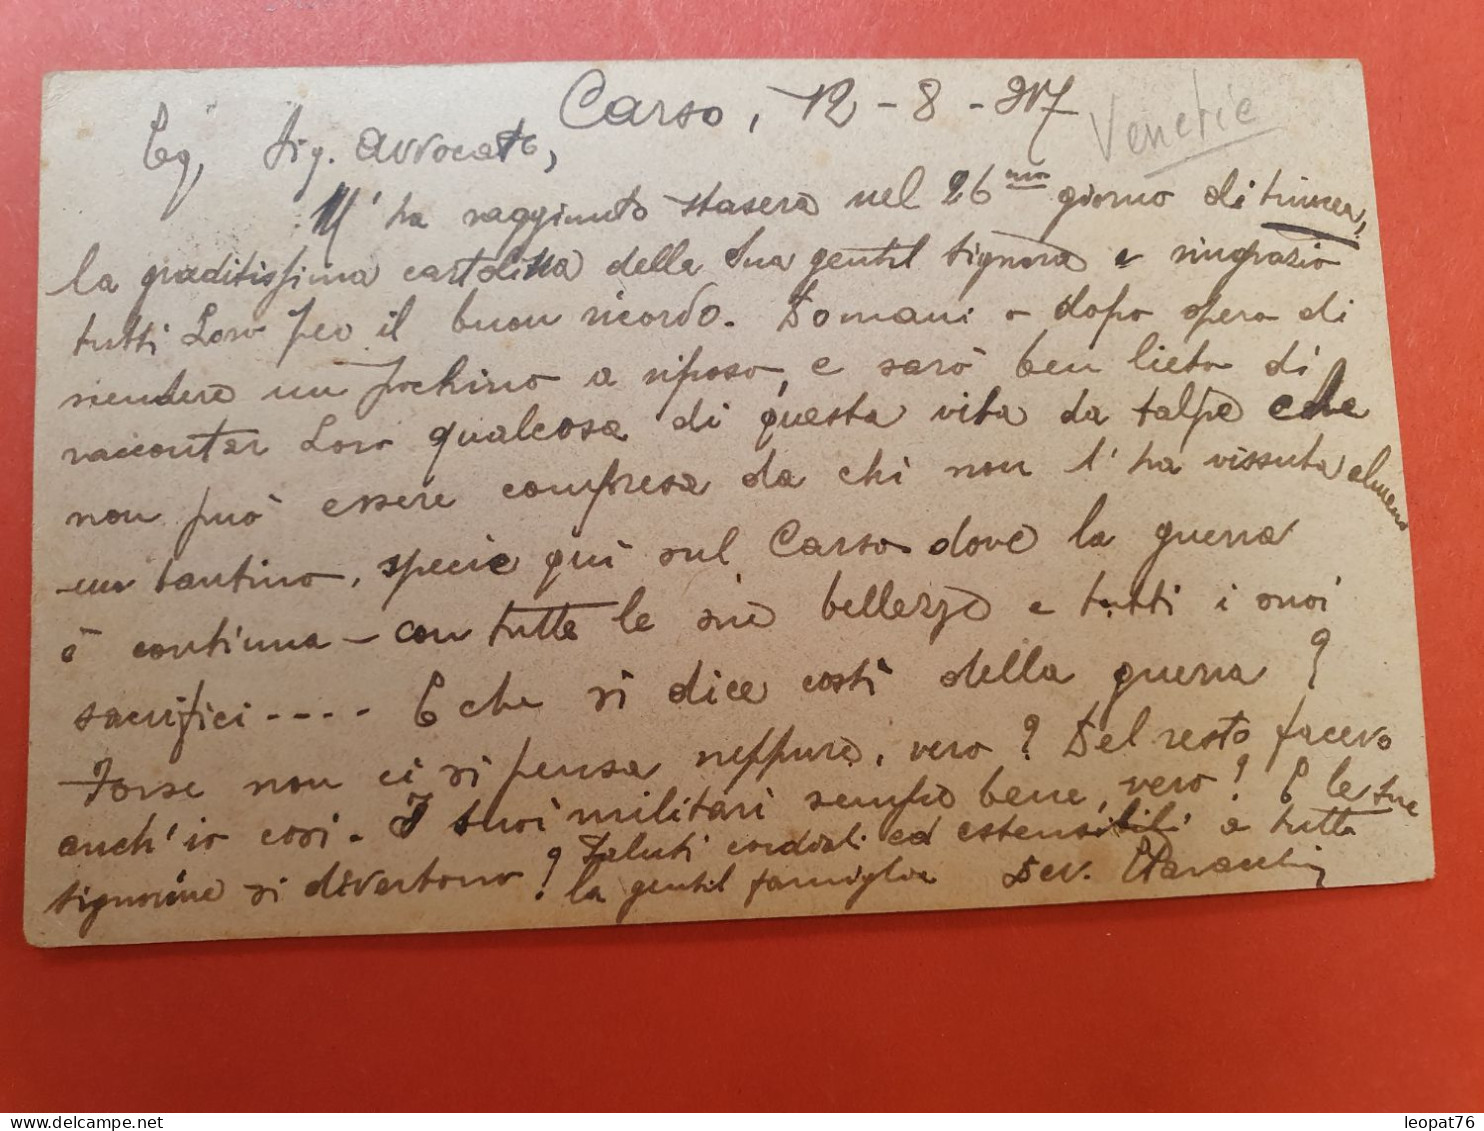 Carso, 12-8-917
Venetie
Eg, Sig. Avvocato,
M'ha raggiunto stasera nel 26mo giorno di trincea,
la graditissima cartolina della Sua gentil Signora e ringrazio
tutti Loro per il buon ricordo. Domani o dopo spero di
scendere un pochino a riposo, e sarò ben lieto di
raccontar Loro qualcosa di questa vita da talpe che
non può essere compresa da chi non l'ha vissuta almeno
un tantino, specie quì sul Carso dove la guerra
è continua - con tutte le sue bellezze e tutti i suoi
sacrifici.... E che si dice costì della guerra?
Forse non ci si pensa neppure, vero? Del resto facevo
anch'io così. I suoi militari sempre bene, vero? E le sue
signorine si divertono? Saluti cordiali ed estensibili a tutta
la gentil famiglia Dev.
leopat76